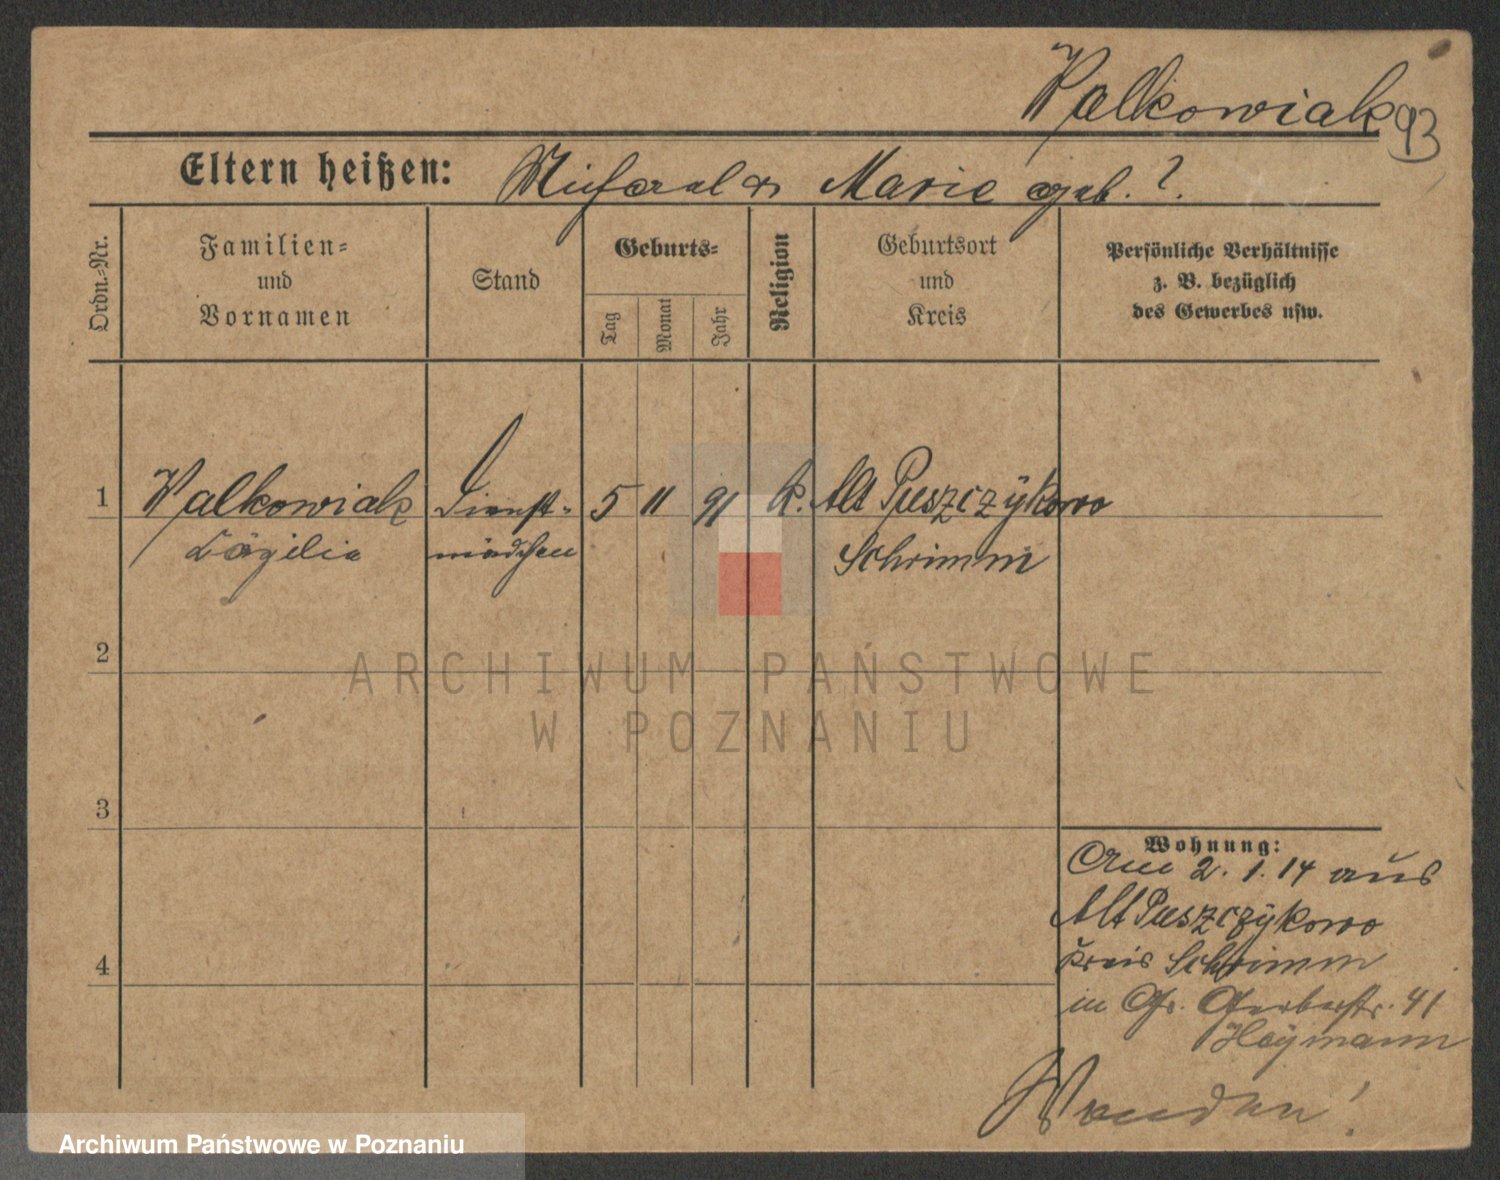 Walkowiak
93
Eltern heißen: Michael u Marie geb. ?.
Ordn.-Nr.
Familien- und Vornamen
Stand
Geburts-
Tag
Monat
Jahr
Religion
Geburtsort und Kreis
Persönliche Verhältnisse z. B. bezüglich des Gewerbes usw.
1 Walkowiak Dienst- 5 11 91 k. Alt Puszczykowo
Cäzilia mädchen Schrimm
2
3
4
Wohnung:
Am 2. 1. 14 aus
Alt Puszczykowo
Kreis Schrimm
in Gr. Gerberstr. 41
Heymann
ARCHIWUM PAŃSTWOWE
W POZNANIU
Archiwum Państwowe w Poznaniu